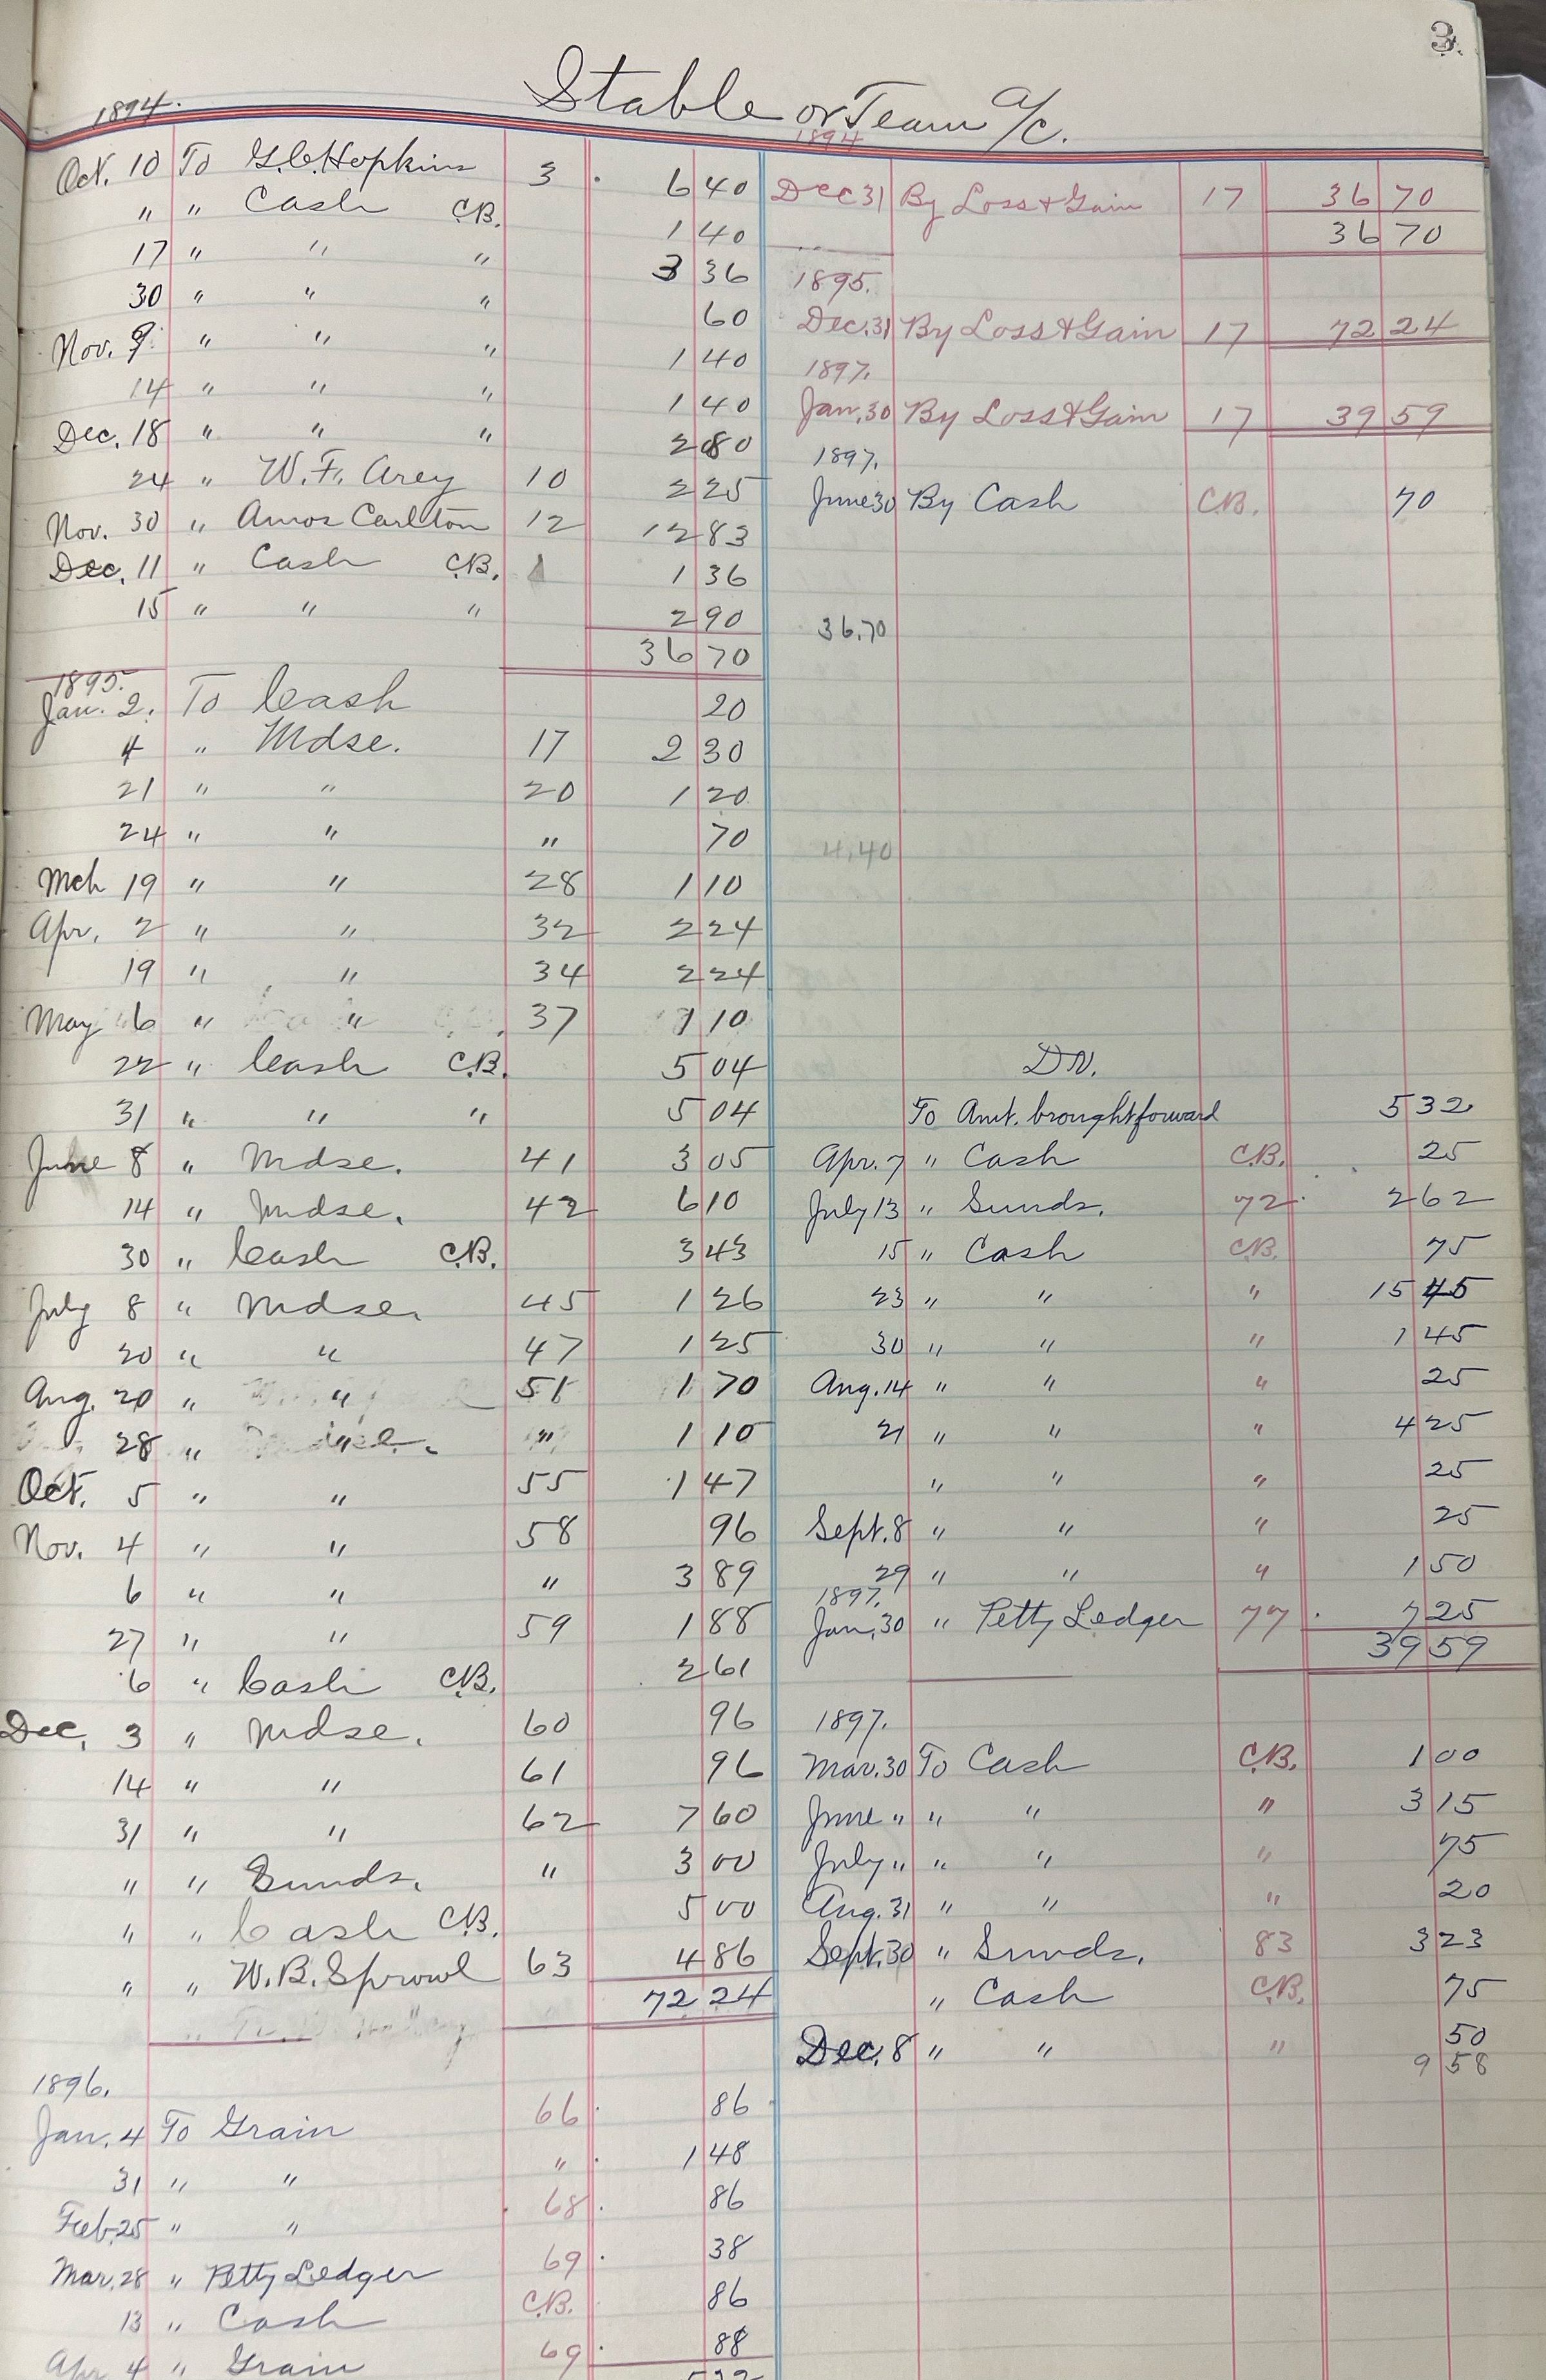 3.
Stable or Team a/c.
1894.
Oct. 10 To G.C. Hopkins 3 6 40
" " Cash C.B. 1 40
17 " " " 3 36
30 " " " 60
Nov. 9 " " " 1 40
14 " " " 1 40
Dec. 18 " " " 2 80
24 " W.F. Arey 10 2 25
Nov. 30 " Amos Carlton 12 12 83
Dec. 11 " Cash C.B. 1 36
15 " " " 2 90
36 70
1895.
Jan. 2. To Cash 20
4 " Mdse. 17 2 30
21 " " 20 1 20
24 " " " 70
Mch 19 " " 28 1 10
Apr. 2 " " 32 2 24
19 " " 34 2 24
May 6 " " 37 1 10
22 " Cash C.B. 5 04
31 " " " 5 04
June 8 " Mdse. 41 3 05
14 " Mdse. 42 6 10
30 " Cash C.B. 3 43
July 8 " Mdse. 45 1 26
20 " " 47 1 25
Aug. 20 " " 51 1 70
28 " " " 1 10
Oct. 5 " " 55 1 47
Nov. 4 " " 58 96
6 " " " 3 89
27 " " 59 1 88
6 " Cash C.B. 2 61
Dec. 3 " Mdse. 60 96
14 " " 61 96
31 " " 62 7 60
" " Sunds. " 3 00
" " Cash C.B. 5 00
" " W.B. Sprowl 63 4 86
72 24
1896.
Jan. 4 To Grain 66 86
31 " " " 1 48
Feb. 25 " " 68 86
Mar. 28 " Petty Ledger 69 38
13 " Cash C.B. 86
Apr 4 " Grain 69 88
1894
Dec 31 By Loss & Gain 17 36 70
36 70
1895.
Dec. 31 By Loss & Gain 17 72 24
1897.
Jan. 30 By Loss & Gain 17 39 59
1897.
June 30 By Cash C.B. 70
36.70
4.40
Dr.
To Amt. brought forward 5 32
Apr. 7 " Cash C.B. 25
July 13 " Sunds. 72 2 62
15 " Cash C.B. 75
23 " " " 15 45
30 " " " 1 45
Aug. 14 " " " 25
21 " " " 4 25
" " " 25
Sept. 8 " " " 25
29 " " " 1 50
1897.
Jan. 30 " Petty Ledger 77 7 25
39 59
1897.
Mar. 30 To Cash C.B. 1 00
June " " " " 3 15
July " " " " 75
Aug. 31 " " " 20
Sept. 30 " Sunds. 83 3 23
" Cash C.B. 75
Dec. 8 " " " 50
9 58